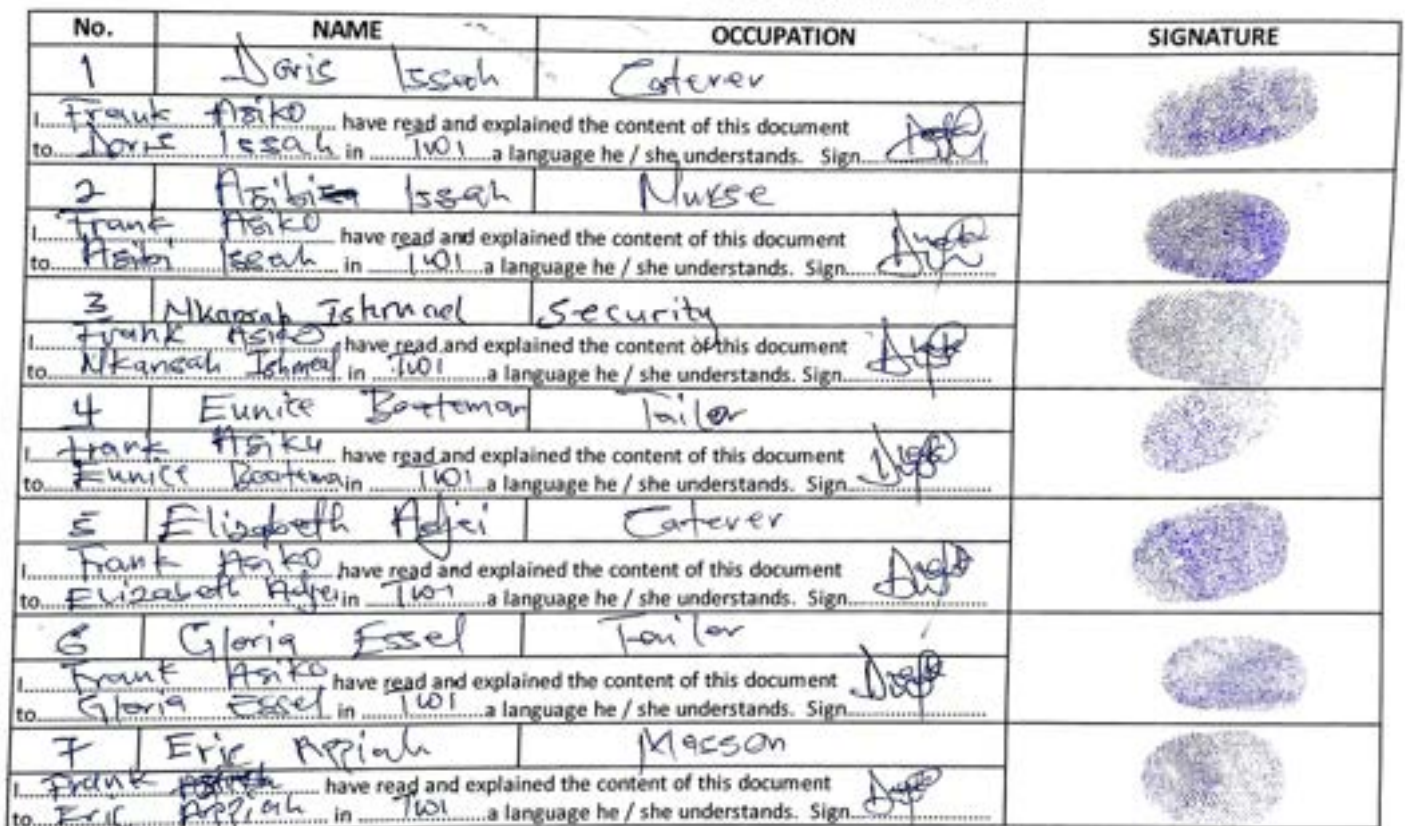 No. NAME OCCUPATION SIGNATURE
1 Doris Issah Caterer
I Frank Asiko have read and explained the content of this document
to Doris Issah in TWI a language he / she understands. Sign
2 Asibi Issah Nurse
I Frank Asiko have read and explained the content of this document
to Asibi Issah in TWI a language he / she understands. Sign
3 Nkansah Ishmael Security
I Frank Asiko have read and explained the content of this document
to Nkansah Ishmeal in TWI a language he / she understands. Sign
4 Eunice Boateman Tailor
I Frank Asiko have read and explained the content of this document
to Eunice Boatema in TWI a language he / she understands. Sign
5 Elizabeth Adjei Caterer
I Frank Asiko have read and explained the content of this document
to Elizabeth Adjei in TWI a language he / she understands. Sign
6 Gloria Essel Tailor
I Frank Asiko have read and explained the content of this document
to Gloria Essel in TWI a language he / she understands. Sign
7 Eric Appiah Masson
I Frank have read and explained the content of this document
to Eric Appiah in TWI a language he / she understands. Sign